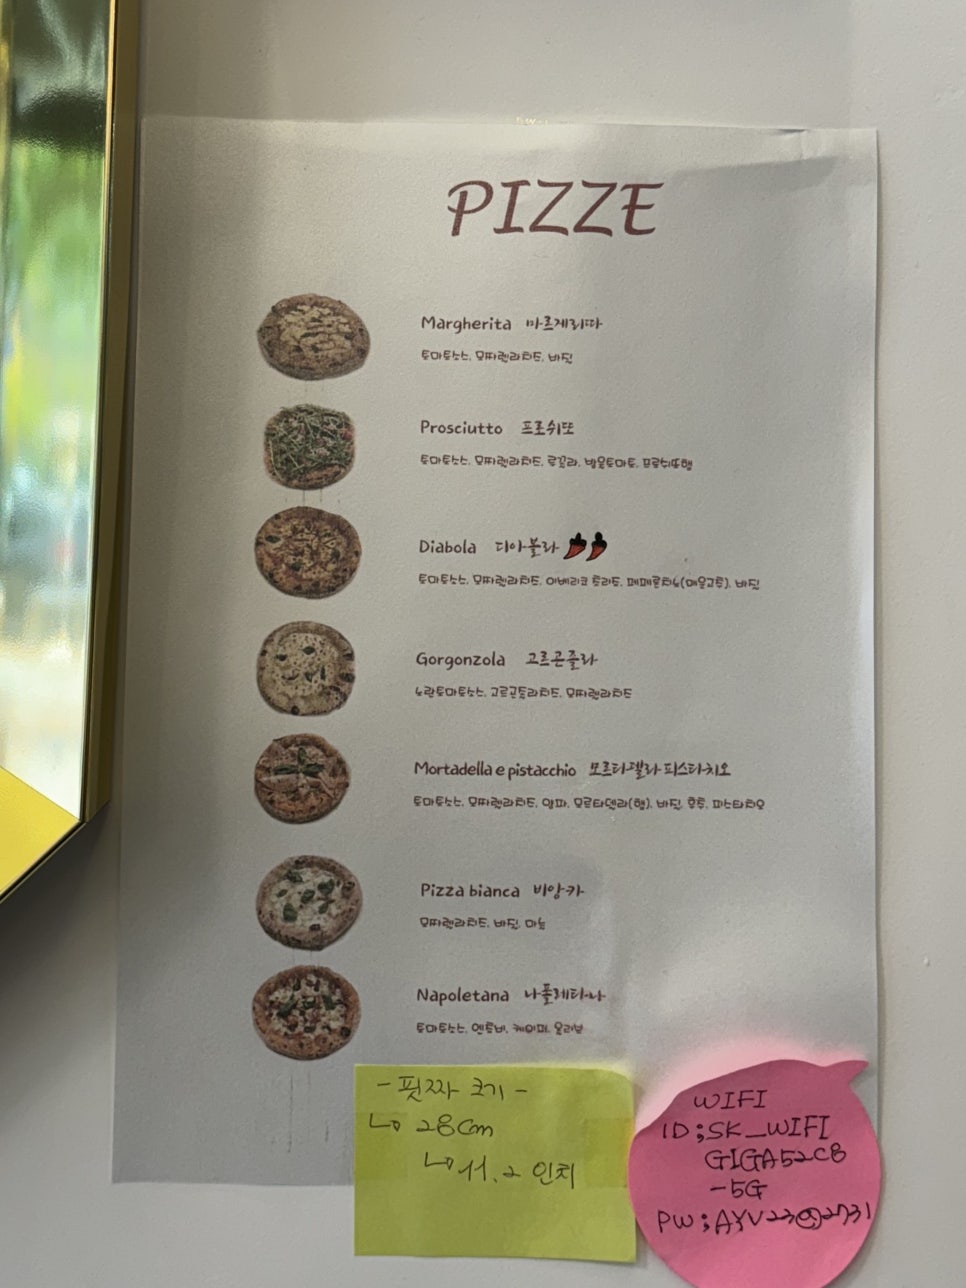 PIZZE
Margherita 마르게리따
토마토소스, 모짜렐라치즈, 바질
Prosciutto 프로쉬또
토마토소스, 모짜렐라치즈, 루꼴라, 방울토마토, 프로쉬또햄
Diabola 디아볼라
토마토소스, 모짜렐라치즈, 이베리코 초리조, 페페론치노(매운고추), 바질
Gorgonzola 고르곤졸라
노란토마토소스, 고르곤졸라치즈, 모짜렐라치즈
Mortadella e pistacchio 모르타델라 피스타치오
토마토소스, 모짜렐라치즈, 양파, 모르타델라(햄), 바질, 후추, 피스타치오
Pizza bianca 비앙카
모짜렐라치즈, 바질, 마늘
Napoletana 나폴레타나
토마토소스, 엔초비, 케이퍼, 올리브
- 핏짜 크기 -
28cm
11.2 인치
WIFI
ID;SK_WIFI
GIGA52C8
-5G
PW;